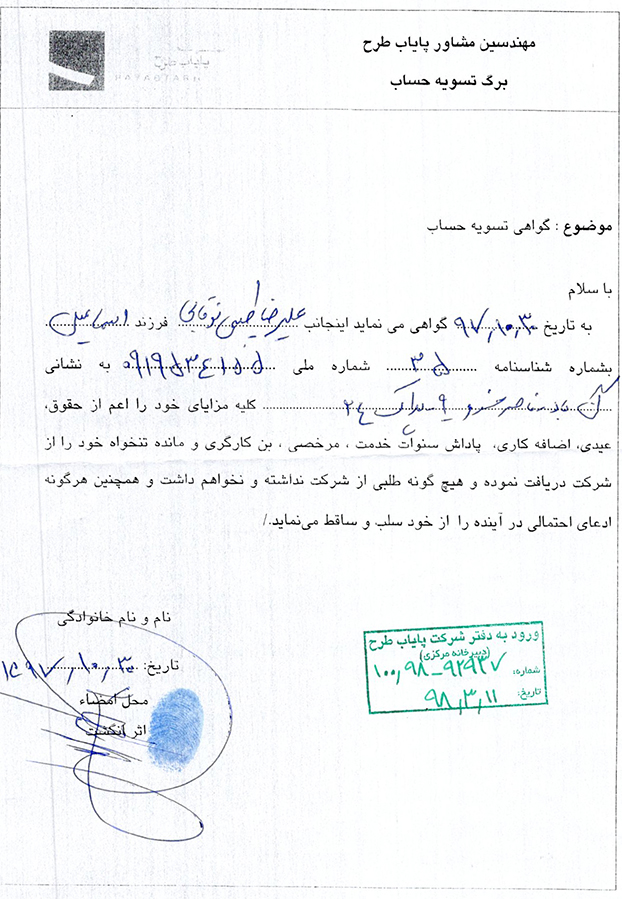 مهندسین مشاور پایاب طرح
برگ تسویه حساب
موضوع : گواهی تسویه حساب
با سلام
به تاریخ ۹۷,۱۰,۳۰ گواهی می نماید اینجانب علیرضا فرزند اسماعیل
بشماره شناسنامه ۳۵ شماره ملی ۰۹۱۹۵۳۴۱۵۵ به نشانی
۹ پلاک ۲۴ کلیه مزایای خود را اعم از حقوق،
عیدی، اضافه کاری، پاداش سنوات خدمت ، مرخصی ، بن کارگری و مانده تنخواه خود را از
شرکت دریافت نموده و هیچ گونه طلبی از شرکت نداشته و نخواهم داشت و همچنین هرگونه
ادعای احتمالی در آینده را از خود سلب و ساقط می‌نماید./
نام و نام خانوادگی
تاریخ: ۱۳۹۷,۱۰,۳۰
محل امضاء
اثر انگشت
ورود به دفتر شرکت پایاب طرح
(دبیرخانه مرکزی)
شماره: ۱۰۰,۹۸-۹۲۹۳۷
تاریخ: ۹۸,۳,۱۱